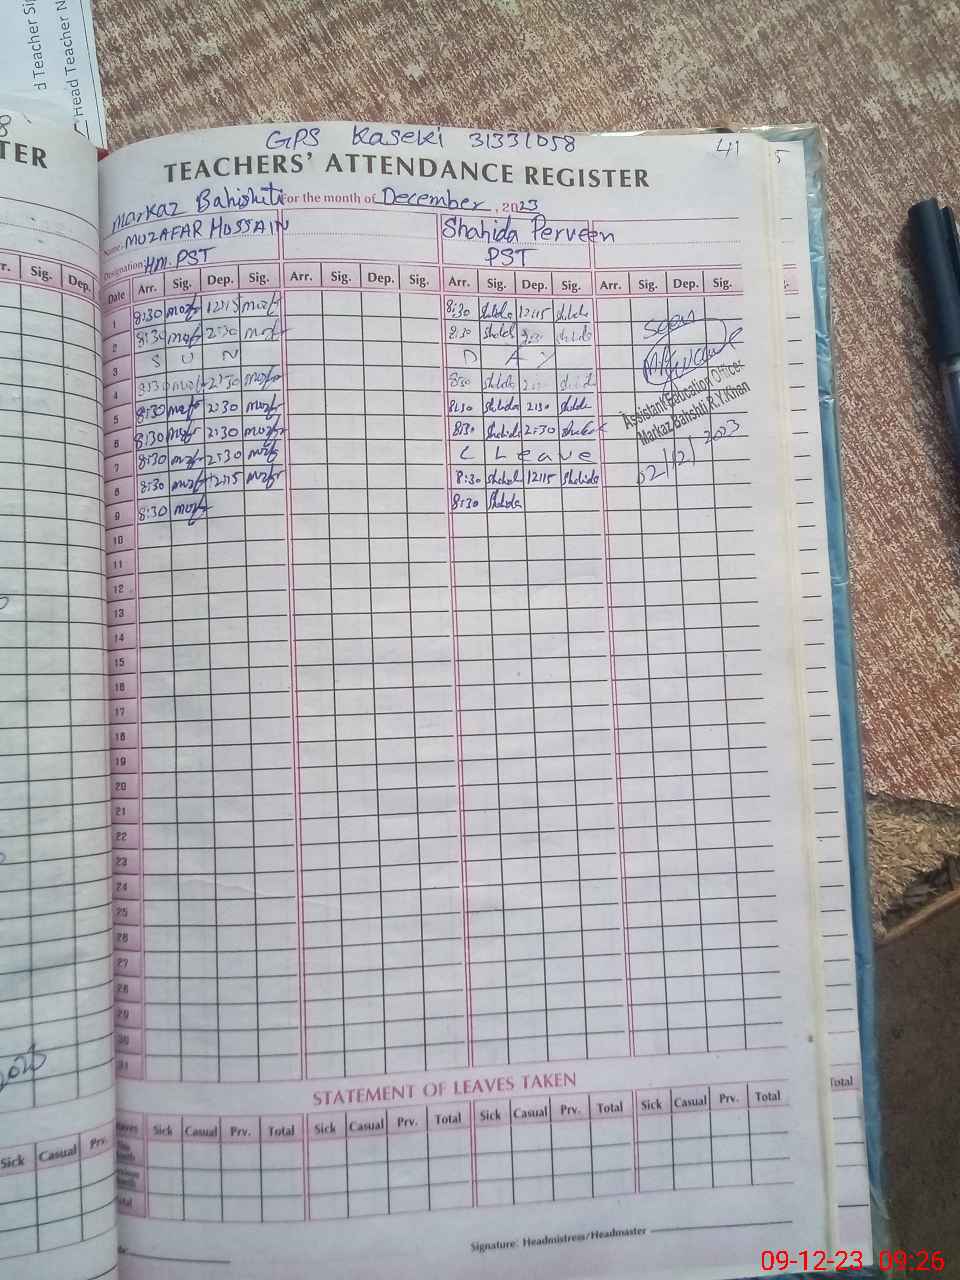 d Teacher Si
Head Teacher N
8
TER
GPS Kaseki 31331058
41
5
TEACHERS' ATTENDANCE REGISTER
Markaz Bahishti For the month of December, 2023
Name: MUZAFAR HUSSAIN Shahida Perveen
Designation: HM.PST PST
r. Sig. Dep. Date Arr. Sig. Dep. Sig. Arr. Sig. Dep. Sig. Arr. Sig. Dep. Sig. Arr. Sig. Dep. Sig.
1 8:30 12:15 8:30 12:15
2 8:30 2:30 8:30
3 S U N D A Y
4 8:30 2:30 8:30
5 8:30 2:30 8:30 2:30
6 8:30 2:30 8:30 2:30
7 8:30 2:30 C Leave
8 8:30 12:15 8:30 Shahida 12:15 Shahida
9 8:30 8:30 Shahida
Seen
Assistant Education Officer
Markaz Bahshti R.Y.Khan
02/12/2023
10
11
12
13
14
15
16
17
18
19
20
21
22
23
24
25
26
27
28
29
30
31
STATEMENT OF LEAVES TAKEN
Sick Casual Prv. Total Sick Casual Prv. Total Sick Casual Prv. Total Sick Casual Prv. Total
Total
Sick Casual Prv.
Signature: Headmistress/Headmaster
09-12-23 09:26